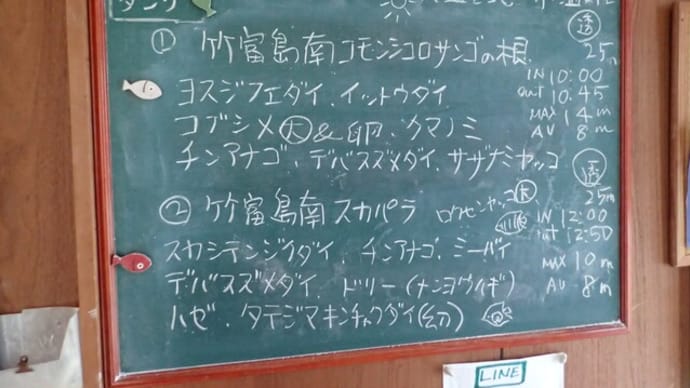 ① 竹富島南コモンシコロサンゴの根
透
25m
ヨスジフエダイ、イットウダイ
IN 10:00
out 10.45
コブシメ大&卵、クマノミ
MAX 14m
AV 8m
チンアナゴ、デバスズメダイ、サザナミヤッコ
透
25m
② 竹富島南スカパラ ロクセンヤッコ大
IN 12:00
out 12:50
スカシテンジクダイ、チンアナゴ、ミーバイ
MAX 10m
デバスズメダイ、ドリー(ナンヨウハギ)
AV 8m
ハゼ、タテジマキンチャクダイ(幼)
LINE